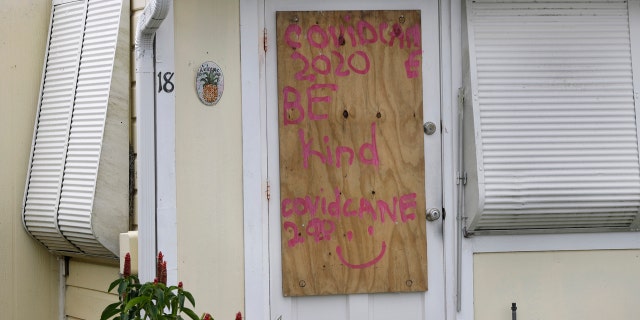 18
COVIDCAN
2020 E
BE
kind
COVIDCANE